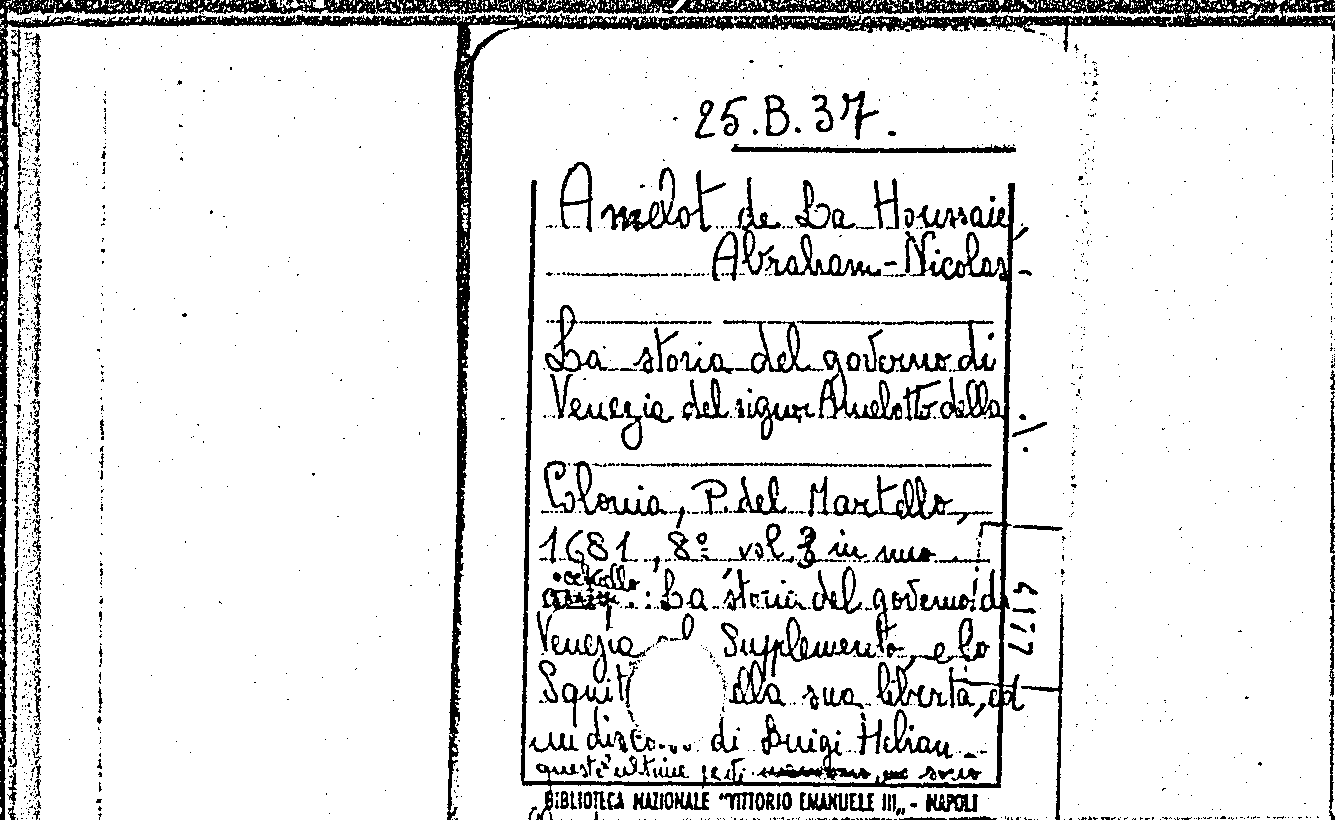 25.B.37.
Amelot de La Houssaie,
Abraham-Nicolas-
La storia del governo di
Venezia del signor Amelotto della ./.
Colonia, P. del Martello,
1681, 8º vol. 3 in uno
occhiello : La storia del governo di
Venezia col Supplemento, e lo
Squit ella sua libertà, ed
un disco... di Luigi Helian
queste ultime parti sono
BIBLIOTECA NAZIONALE "VITTORIO EMANUELE III„ - NAPOLI
4177